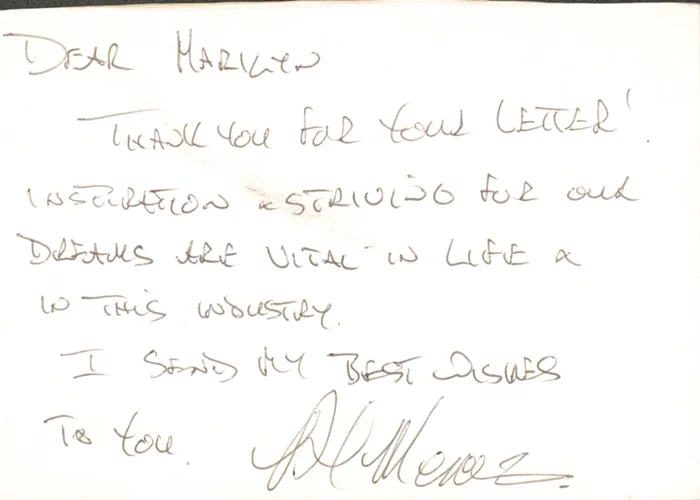 DEAR MARILYN
THANK YOU FOR YOUR LETTER!
INSPIRATION & STRIVING FOR OUR
DREAMS ARE VITAL IN LIFE &
IN THIS INDUSTRY.
I SEND MY BEST WISHES
TO YOU.